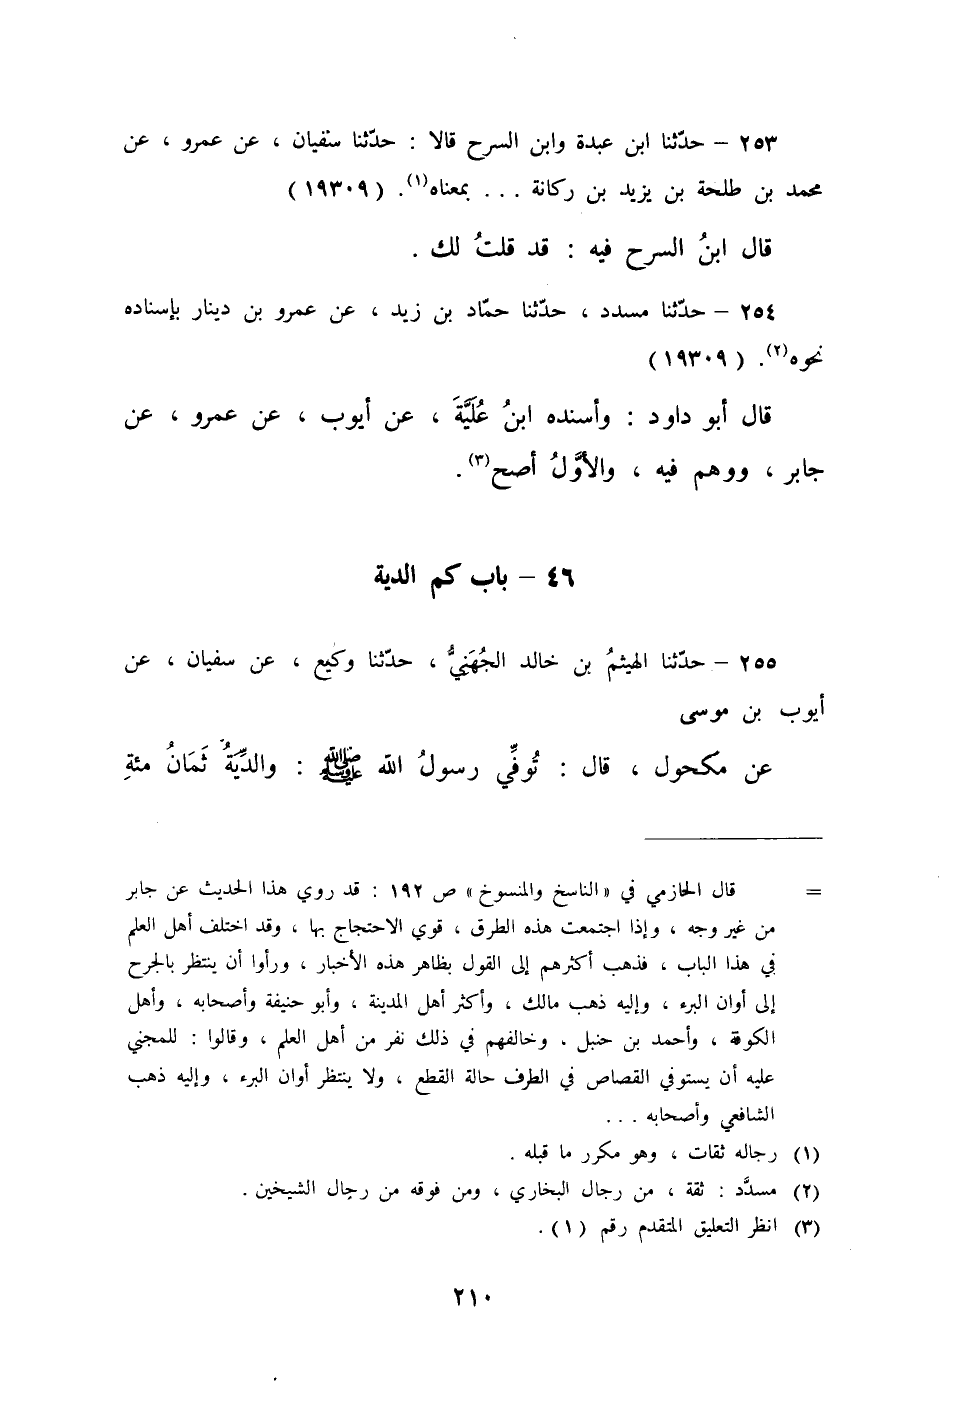 ٢٥٣ – حدّثنا ابن عبدة وابن السرح قالا : حدّثنا سفيان ، عن عمرو ، عن
محمد بن طلحة بن يزيد بن ركانة . . . بمعناه(١). (١٩٣٠٩)
قال ابنُ السرح فيه : قد قلتُ لك .
٢٥٤ – حدّثنا مسدد ، حدّثنا حمّاد بن زيد ، عن عمرو بن دينار بإسناده
نحوه(٢). (١٩٣٠٩)
قال أبو داود : وأسنده ابنُ عُلَيَّةَ ، عن أيوب ، عن عمرو ، عن
جابر ، ووهم فيه ، والأوَّلُ أصح(٣).
٤٦ – باب كم الدية
٢٥٥ – حدّثنا الهيثمُ بن خالد الجُهَنِيُّ ، حدّثنا وكيع ، عن سفيان ، عن
أيوب بن موسى
عن مكحول ، قال : تُوفِّي رسولُ الله ﷺ : والدِّيَةُ ثَمَانُ مئةِ
= قال الحازمي في «الناسخ والمنسوخ» ص ١٩٢ : قد روي هذا الحديث عن جابر
من غير وجه ، وإذا اجتمعت هذه الطرق ، قوي الاحتجاج بها ، وقد اختلف أهل العلم
في هذا الباب ، فذهب أكثرهم إلى القول بظاهر هذه الأخبار ، ورأوا أن ينتظر بالجرح
إلى أوان البرء ، وإليه ذهب مالك ، وأكثر أهل المدينة ، وأبو حنيفة وأصحابه ، وأهل
الكوفة ، وأحمد بن حنبل . وخالفهم في ذلك نفر من أهل العلم ، وقالوا : للمجني
عليه أن يستوفي القصاص في الطرف حالة القطع ، ولا ينتظر أوان البرء ، وإليه ذهب
الشافعي وأصحابه . . .
(١) رجاله ثقات ، وهو مكرر ما قبله .
(٢) مسدَّد : ثقة ، من رجال البخاري ، ومن فوقه من رجال الشيخين .
(٣) انظر التعليق المتقدم رقم (١) .
٢١٠